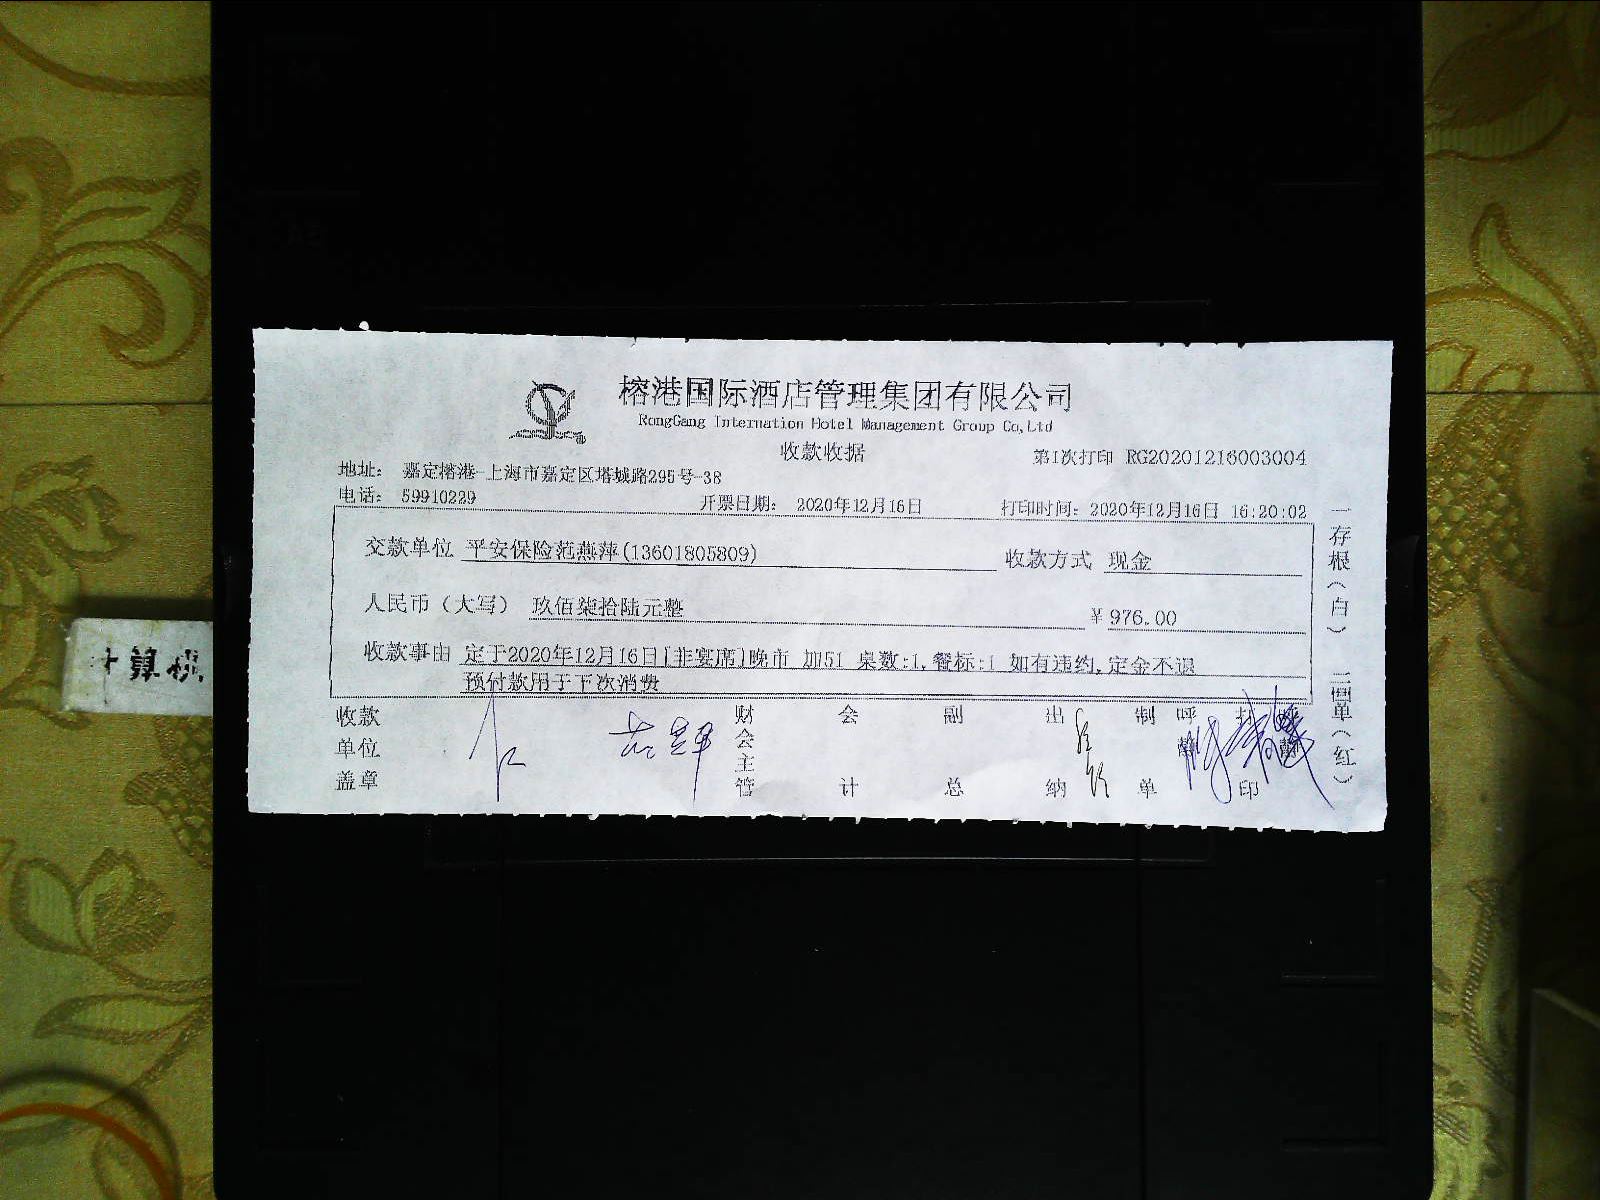 榕港国际酒店管理集团有限公司
RongGang Internation Hotel Management Group Co,Ltd
收款收据
第1次打印 RG20201216003004
地址： 嘉定榕港-上海市嘉定区塔城路295号-38
电话： 59910229
开票日期： 2020年12月16日
打印时间：2020年12月16日 16:20:02
交款单位 平安保险范燕萍(13601805809)
收款方式 现金
人民币（大写） 玖佰柒拾陆元整
¥ 976.00
收款事由 定于2020年12月16日[非宴席]晚市 加51 桌数:1,餐标:1 如有违约,定金不退
预付款用于下次消费
收款单位盖章
财会主管
会计
副总
出纳
制单
打印
一存根（白）
单（红）
计算机